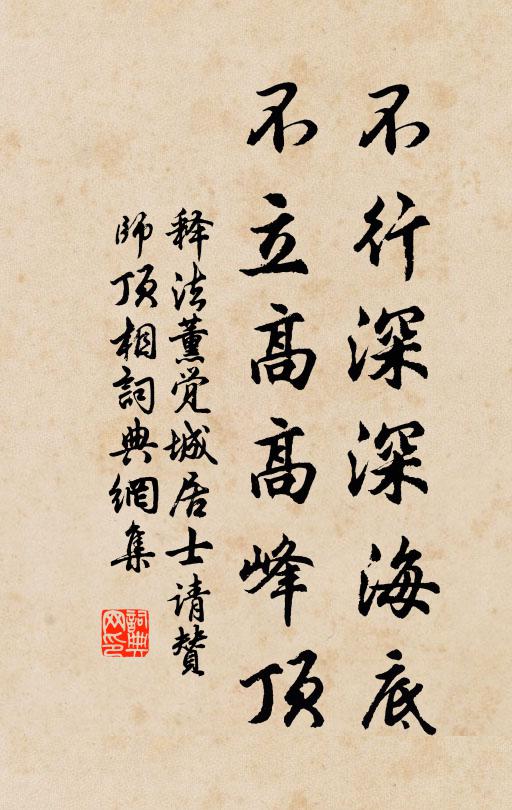 不行深深海底
不立高高峰顶
释法薰觉城居士请赞
师顶相詞典網集
詞典
网印